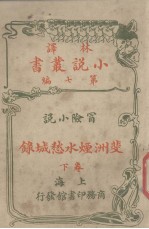 林譯
小説叢書
第七編
冐險小説
斐洲煙水愁城錄
卷下
上海
商務印書館發行